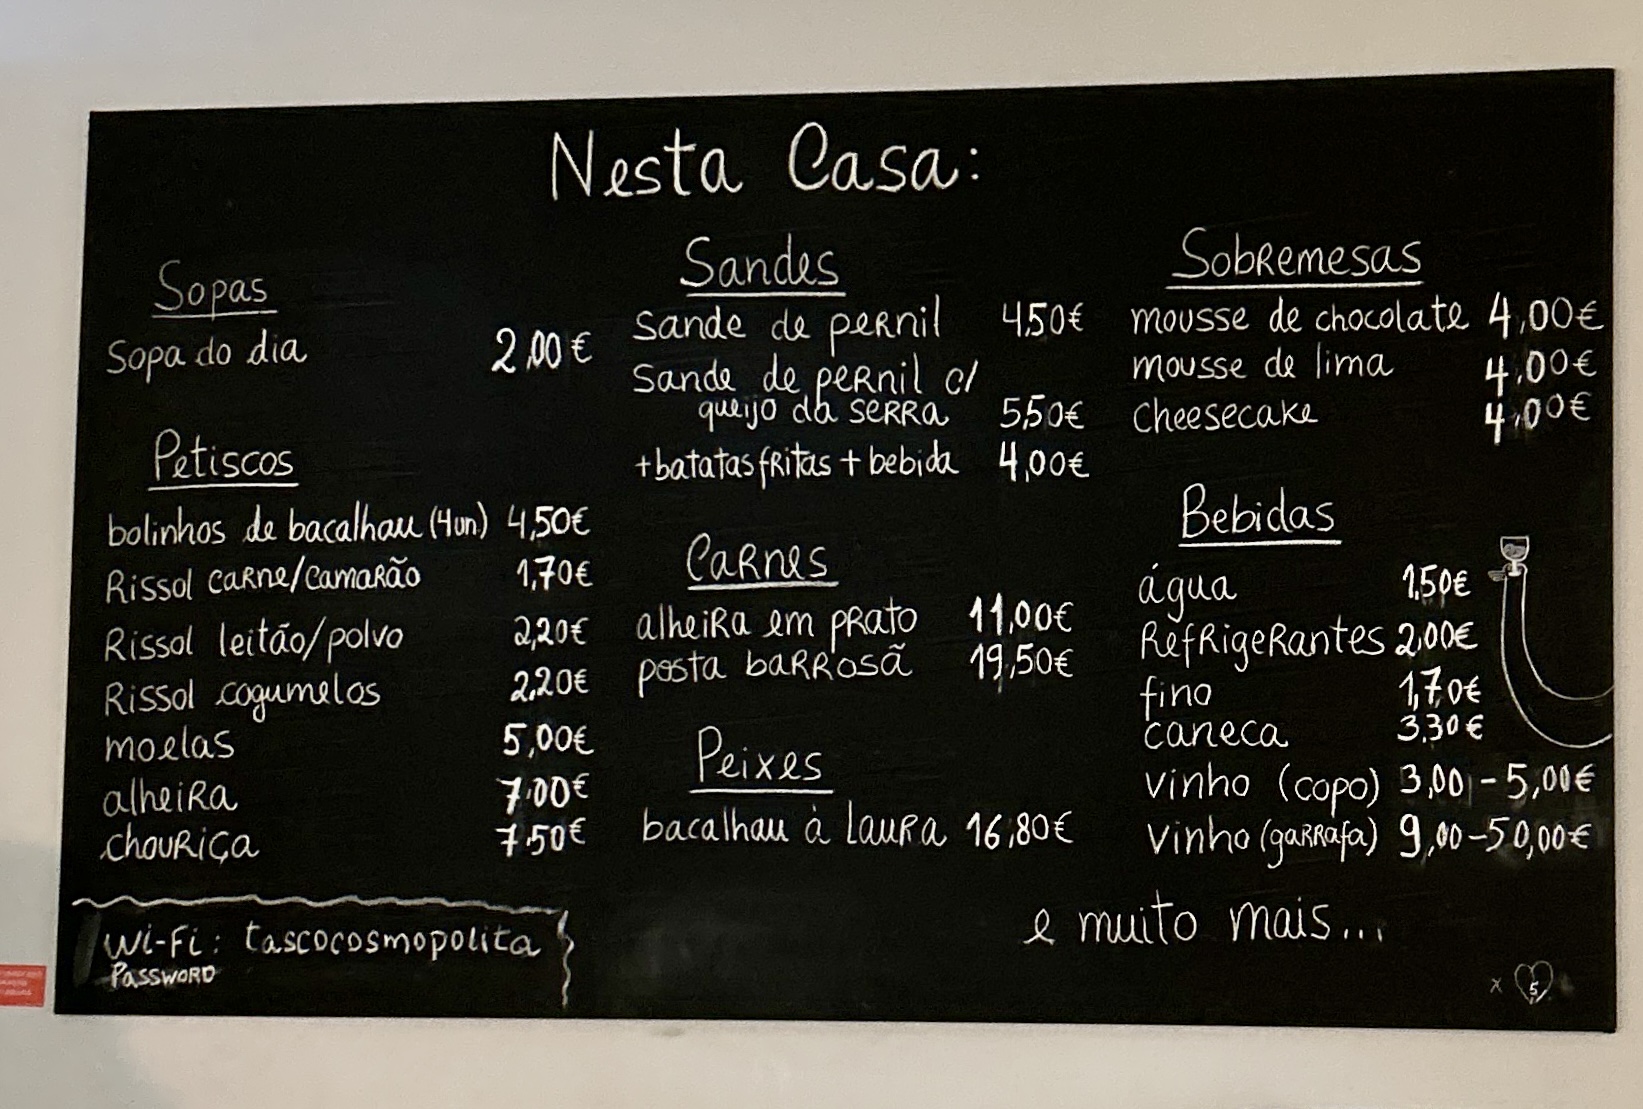 Nesta Casa:
Sopas
Sopa do dia 2,00€
Petiscos
bolinhos de bacalhau (4un.) 4,50€
Rissol carne/camarão 1,70€
Rissol leitão/polvo 2,20€
Rissol cogumelos 2,20€
moelas 5,00€
alheira 7.00€
chouriça 7.50€
Wi-Fi: tascocosmopolita
Password
Sandes
Sande de pernil 4,50€
Sande de pernil c/
queijo da serra 5,50€
+batatas fritas + bebida 4,00€
Carnes
alheira em prato 11,00€
posta barrosã 19,50€
Peixes
bacalhau à Laura 16,80€
Sobremesas
mousse de chocolate 4,00€
mousse de lima 4,00€
Cheesecake 4,00€
Bebidas
água 1,50€
Refrigerantes 2,00€
fino 1,70€
caneca 3,30€
vinho (copo) 3,00 - 5,00€
vinho (garrafa) 9,00 - 50,00€
e muito mais...
x 5